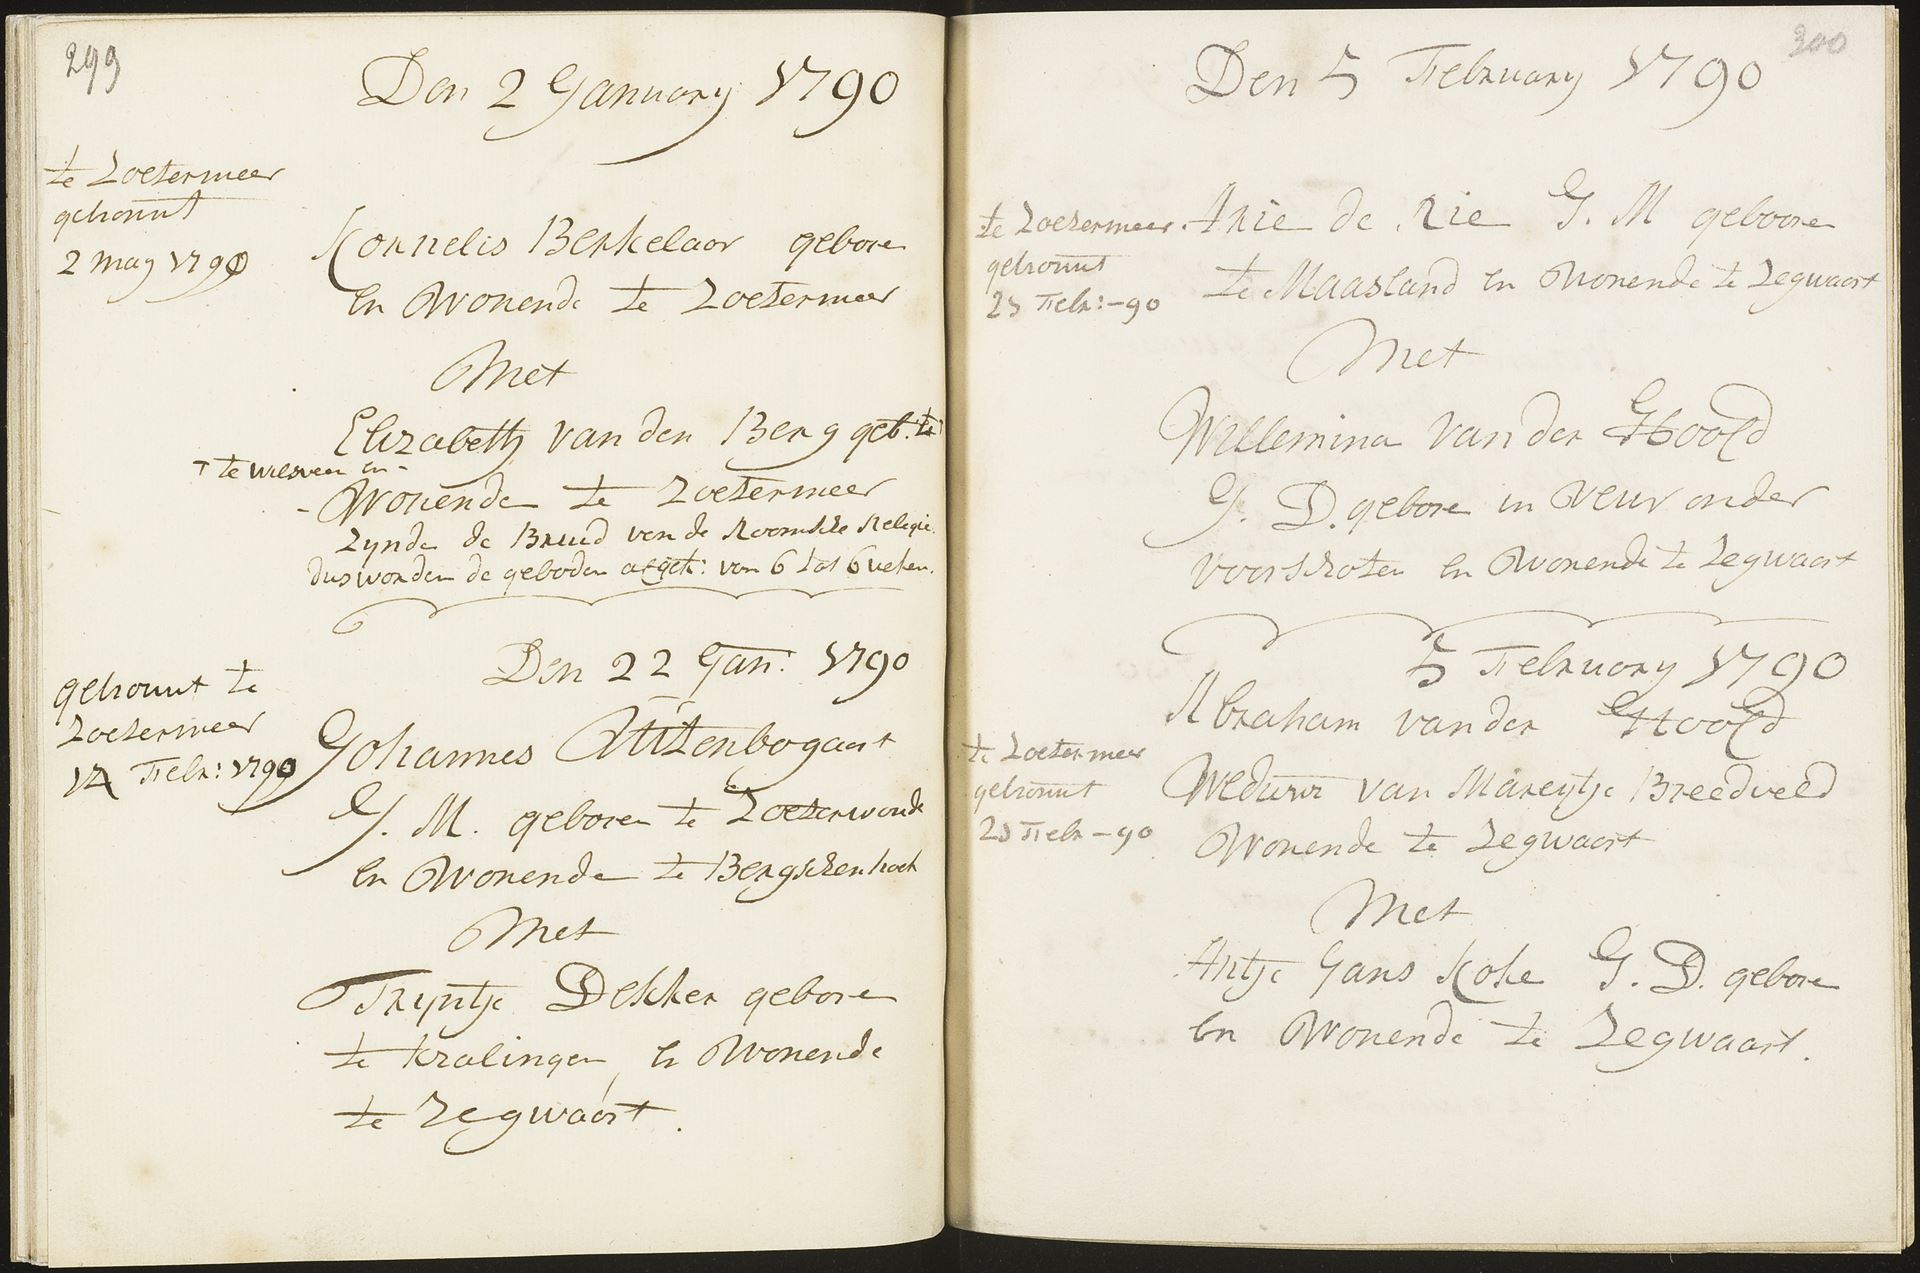 299
Den 2 January 1790
te Zoetermeer
getrouwt
2 may 1790
Kornelis Berkelaar gebore
En Wonende te Zoetermeer
Met
Elizabeth van den Berg geb: te
en
Wonende te Zoetermeer
Zynde de Bruid van de Roomsche Relegie
dus worden de geboden afgek: van 6 tot 6 weken.
Den 22 Jan: 1790
getrouwt te
Zoetermeer
14 Febr: 1790
Johannes Uitenbogaart
J. M. geboren te Zoeterwoude
En Wonende te Bergschenhoek
Met
Tryntje Dekker gebore
te Kralingen, En Wonende
te Zegwaart.
300
Den 5 February 1790
te Zoetermeer
getrouwt
21 Febr: - 90
Arie de Rie J. M geboore
te Maasland En Wonende te Zegwaart
Met
Willemina van der Hoofd
J. D. gebore in Veur onder
Voorschoten En Wonende te Zegwaart
5 February 1790
te Zoetermeer
getrouwt
21 Febr - 90
Abraham van der Hoofd
Weduwr van Mareytje Breedveld
Wonende te Zegwaart
Met
Antje Jans Koke J. D. gebore
En Wonende te Zegwaart.